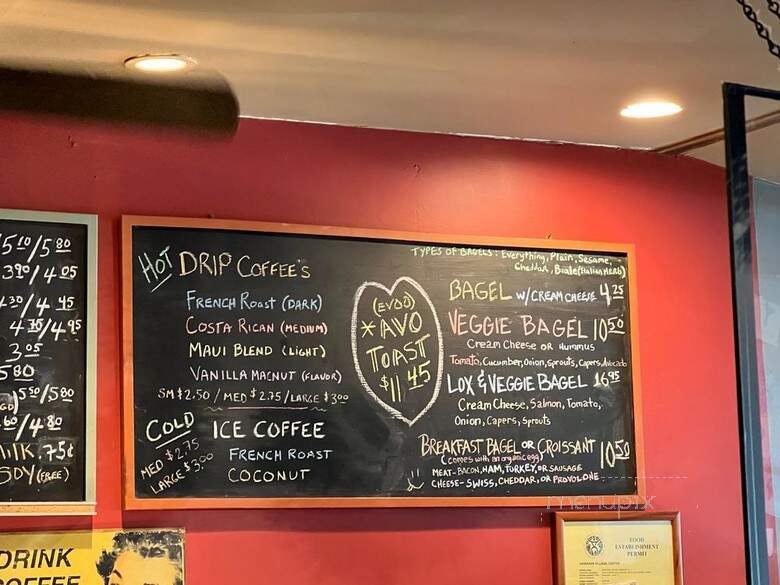 5 10/5 80
3 90/4 05
4 30/4 45
4 35/4 95
3 05
5 80
5 50/5 80
60/4 80
MILK .75¢
SOY (FREE)
HOT DRIP COFFEE'S
FRENCH ROAST (DARK)
COSTA RICAN (MEDIUM)
MAUI BLEND (LIGHT)
VANILLA MACNUT (FLAVOR)
SM $2.50 / MED $2.75 / LARGE $3.00
COLD ICE COFFEE
MED $2.75
LARGE $3.00
FRENCH ROAST
COCONUT
(EVOO)
*AVO
TOAST
$11.45
TYPES OF BAGELS: Everything, Plain, Sesame,
Cheddar, Biale (Italian Herb)
BAGEL W/CREAM CHEESE 4.25
VEGGIE BAGEL 10 50
Cream Cheese OR Hummus
Tomato, Cucumber, Onion, Sprouts, Capers, Avocado
LOX & VEGGIE BAGEL 16 95
Cream Cheese, Salmon, Tomato,
Onion, Capers, Sprouts
BREAKFAST BAGEL OR CROISSANT 10 50
(comes with an organic egg)
MEAT-BACON, HAM, TURKEY, OR SAUSAGE
CHEESE-SWISS, CHEDDAR, OR PROVOLONE
menupix
DRINK
COFFEE
FOOD
ESTABLISHMENT
PERMIT